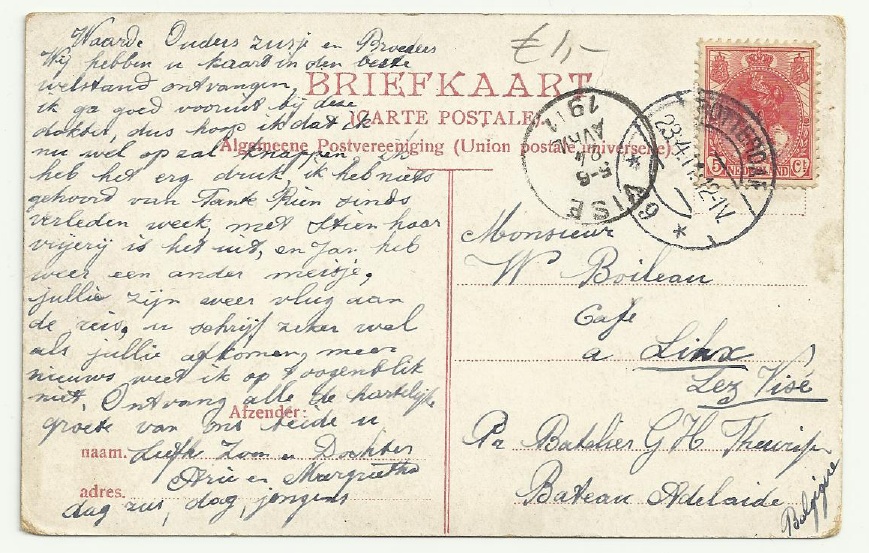 Waarde Ouders zusje en Broeders
Wij hebben u kaart in den beste
welstand ontvangen,
ik ga goed vooruit bij deze
dokter, dus hoop ik dat ik
nu wel op zal knappen ik
heb het erg druk ik heb niets
gehoord van Tante Rien sinds
verleden week, met Stien haar
vrijerij is het uit, en Jan heb
weer een ander meisje,
jullie zijn weer vlug aan
de reis, u schrijf zeker wel
als jullie afkomen, meer
nieuws weet ik op t oogenblik
niet, Ontvang alle de hartelijke
groete van ons beide u
Liefh Zoon en Dochter
Arie en Margrietha
dag zus, dag, jongens
£ 1,-
BRIEFKAART
(CARTE POSTALE)
Algemeene Postvereeniging (Union postale universelle)
Afzender:
naam.
adres.
5 NEDERLAND Ct
ROTTERDAM
23.4.11.12-1V.
6
VISE
5-6
24
AVRIL
1911
Monsieur
W Boileau
Café
a Linx
Lez Visé
Pr Batelier G H
Bateau Adelaide
Belgique